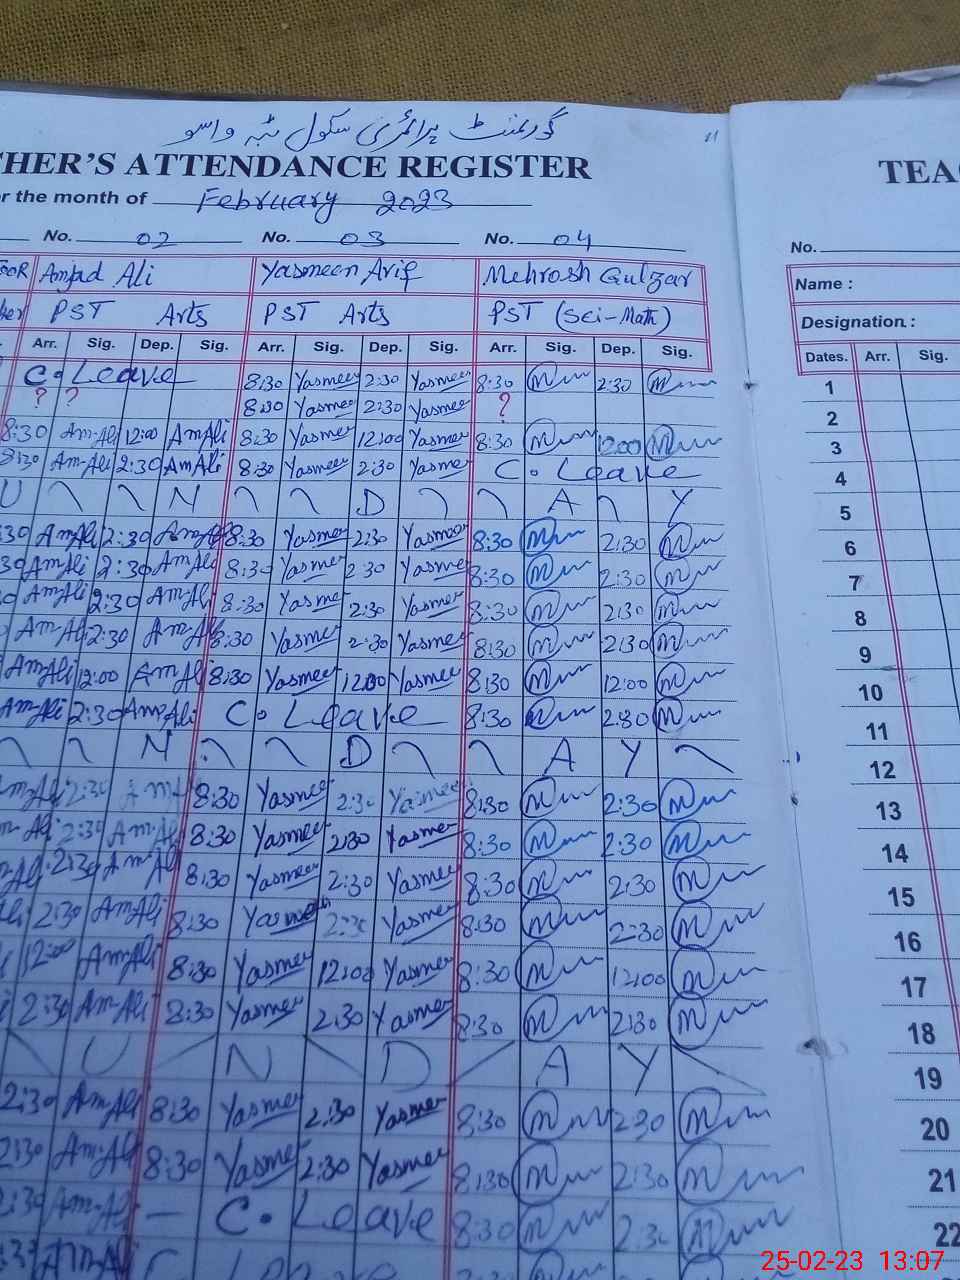 گورنمنٹ پرائمری سکول ٹبہ واسو
HER'S ATTENDANCE REGISTER
r the month of February 2023
No. 02 No. 03 No. 04
Amjad Ali Yasmeen Arif Mehrosh Gulzar
PST Arts PST Arts PST (Sci-Math)
Arr. Sig. Dep. Sig. Arr. Sig. Dep. Sig. Arr. Sig. Dep. Sig.
C. Leave 8:30 Yasmeen 2:30 Yasmeen 8:30 2:30
? ? 8:30 Yasmeen 2:30 Yasmeen ?
8:30 Am-Ali 12:00 AmAli 8:30 Yasmeen 12:00 Yasmeen 8:30 12:00
8:30 Am-Ali 2:30 AmAli 8:30 Yasmeen 2:30 Yasmeen C. Leave
U N D A Y
:30 AmAli 2:30 AmAli 8:30 Yasmeen 2:30 Yasmeen 8:30 2:30
30 AmAli 2:30 AmAli 8:30 Yasmeen 2:30 Yasmeen 8:30 2:30
AmAli 2:30 AmAli 8:30 Yasmeen 2:30 Yasmeen 8:30 2:30
AmAli 2:30 AmAli 8:30 Yasmeen 2:30 Yasmeen 8:30 2:30
AmAli 12:00 AmAli 8:30 Yasmeen 12:00 Yasmeen 8:30 12:00
AmAli 2:30 AmAli C. Leave 8:30 2:30
N D A Y
AmAli 2:30 AmAli 8:30 Yasmeen 2:30 Yasmeen 8:30 2:30
m-Ali 2:30 AmAli 8:30 Yasmeen 2:30 Yasmeen 8:30 2:30
mAli 2:30 AmAli 8:30 Yasmeen 2:30 Yasmeen 8:30 2:30
Ali 2:30 AmAli 8:30 Yasmeen 2:30 Yasmeen 8:30 2:30
12:00 AmAli 8:30 Yasmeen 12:00 Yasmeen 8:30 12:00
2:30 Am-Ali 8:30 Yasmeen 2:30 Yasmeen 8:30 2:30
U N D A Y
2:30 AmAli 8:30 Yasmeen 2:30 Yasmeen 8:30 2:30
2:30 Am-Ali 8:30 Yasmeen 2:30 Yasmeen 8:30 2:30
2:30 Am-Ali C. Leave 8:30 2:30
AmAli
TEA
No.
Name :
Designation :
Dates. Arr. Sig.
1
2
3
4
5
6
7
8
9
10
11
12
13
14
15
16
17
18
19
20
21
22
25-02-23 13:07